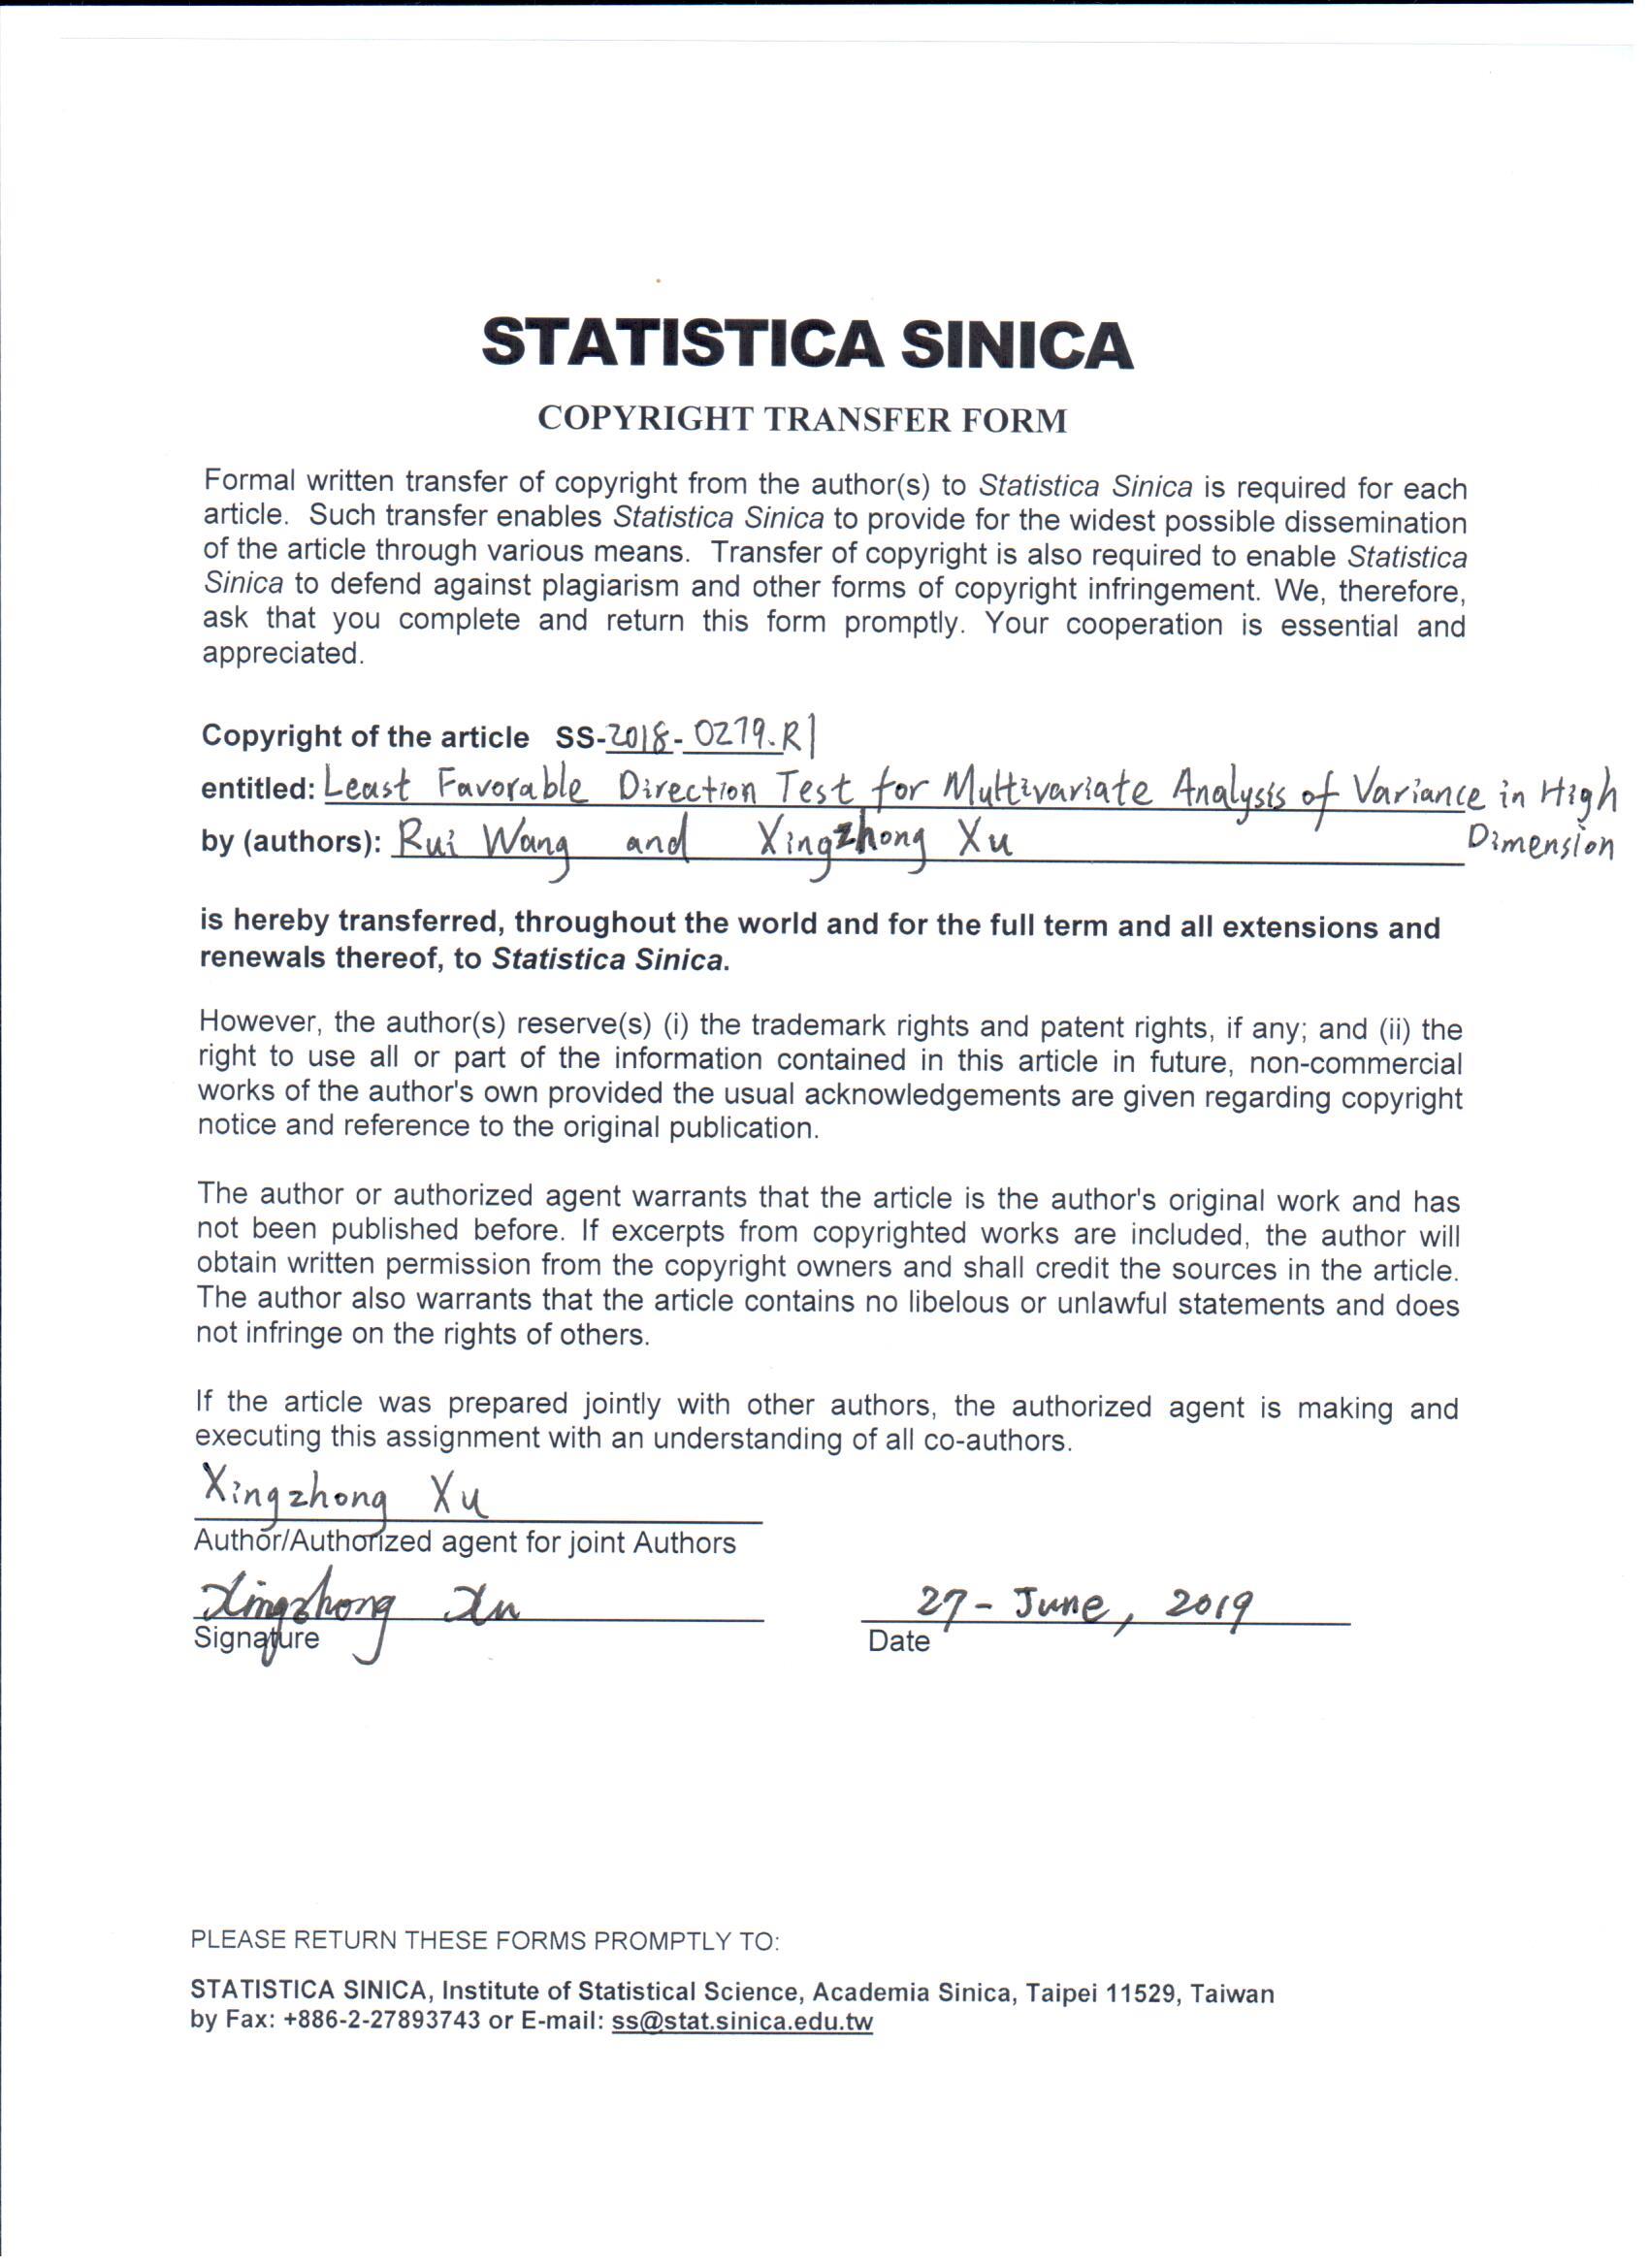 STATISTICA SINICA
COPYRIGHT TRANSFER FORM
Formal written transfer of copyright from the author(s) to Statistica Sinica is required for each
article. Such transfer enables Statistica Sinica to provide for the widest possible dissemination
of the article through various means. Transfer of copyright is also required to enable Statistica
Sinica to defend against plagiarism and other forms of copyright infringement. We, therefore,
ask that you complete and return this form promptly. Your cooperation is essential and
appreciated.
Copyright of the article SS-2018-0279.R1
entitled: Least Favorable Direction Test for Multivariate Analysis of Variance in High
Dimension
by (authors): Rui Wang and Xingzhong Xu
is hereby transferred, throughout the world and for the full term and all extensions and
renewals thereof, to Statistica Sinica.
However, the author(s) reserve(s) (i) the trademark rights and patent rights, if any; and (ii) the
right to use all or part of the information contained in this article in future, non-commercial
works of the author's own provided the usual acknowledgements are given regarding copyright
notice and reference to the original publication.
The author or authorized agent warrants that the article is the author's original work and has
not been published before. If excerpts from copyrighted works are included, the author will
obtain written permission from the copyright owners and shall credit the sources in the article.
The author also warrants that the article contains no libelous or unlawful statements and does
not infringe on the rights of others.
If the article was prepared jointly with other authors, the authorized agent is making and
executing this assignment with an understanding of all co-authors.
Xingzhong Xu
Author/Authorized agent for joint Authors
Xingzhong Xu 27-June, 2019
Signature Date
PLEASE RETURN THESE FORMS PROMPTLY TO:
STATISTICA SINICA, Institute of Statistical Science, Academia Sinica, Taipei 11529, Taiwan
by Fax: +886-2-27893743 or E-mail: ss@stat.sinica.edu.tw